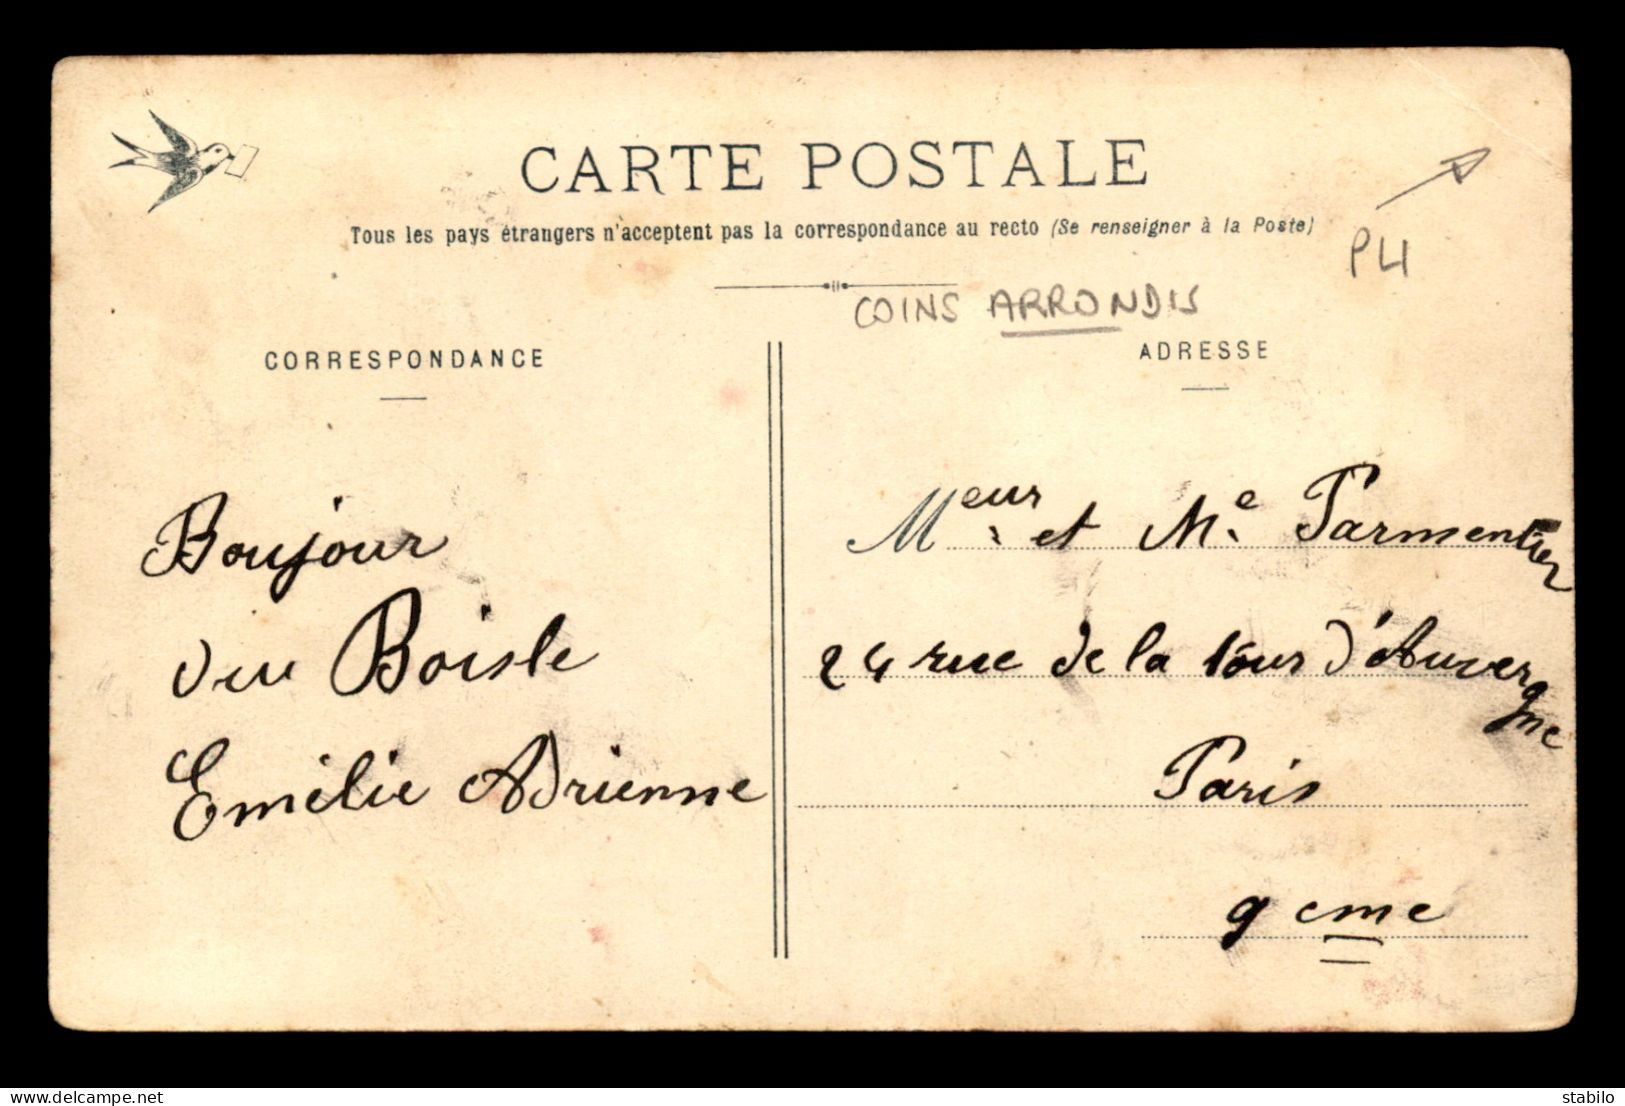 CARTE POSTALE
Tous les pays étrangers n'acceptent pas la correspondance au recto (Se renseigner à la Poste)
PLI
COINS ARRONDIS
CORRESPONDANCE
ADRESSE
Boujour
du Boisle
Emilie Adrienne
Meur et Me Parmentier
24 rue de la tour d'Auvergne
Paris
9 eme
delcampe.net
stabilo